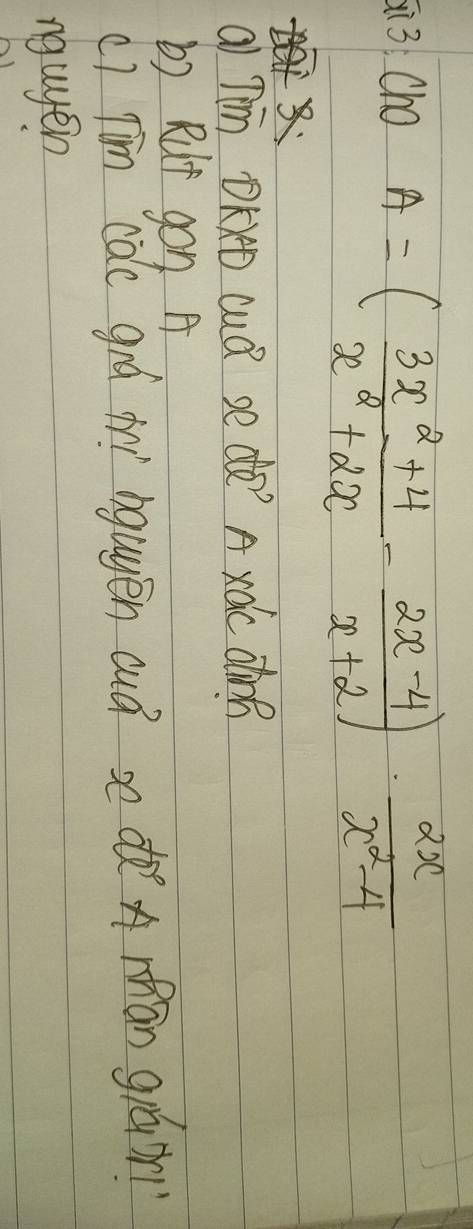 ài 3: Cho A = ( \frac{3x^2+4}{x^2+2x} - \frac{2x-4}{x+2} ) . \frac{2x}{x^2-4}
Bài 3:
a) Tìm ĐKXĐ cuả x để A xác định
b) Rút gọn A
c) Tìm các giá trị nguyên cuả x để A nhận giá trị
nguyên